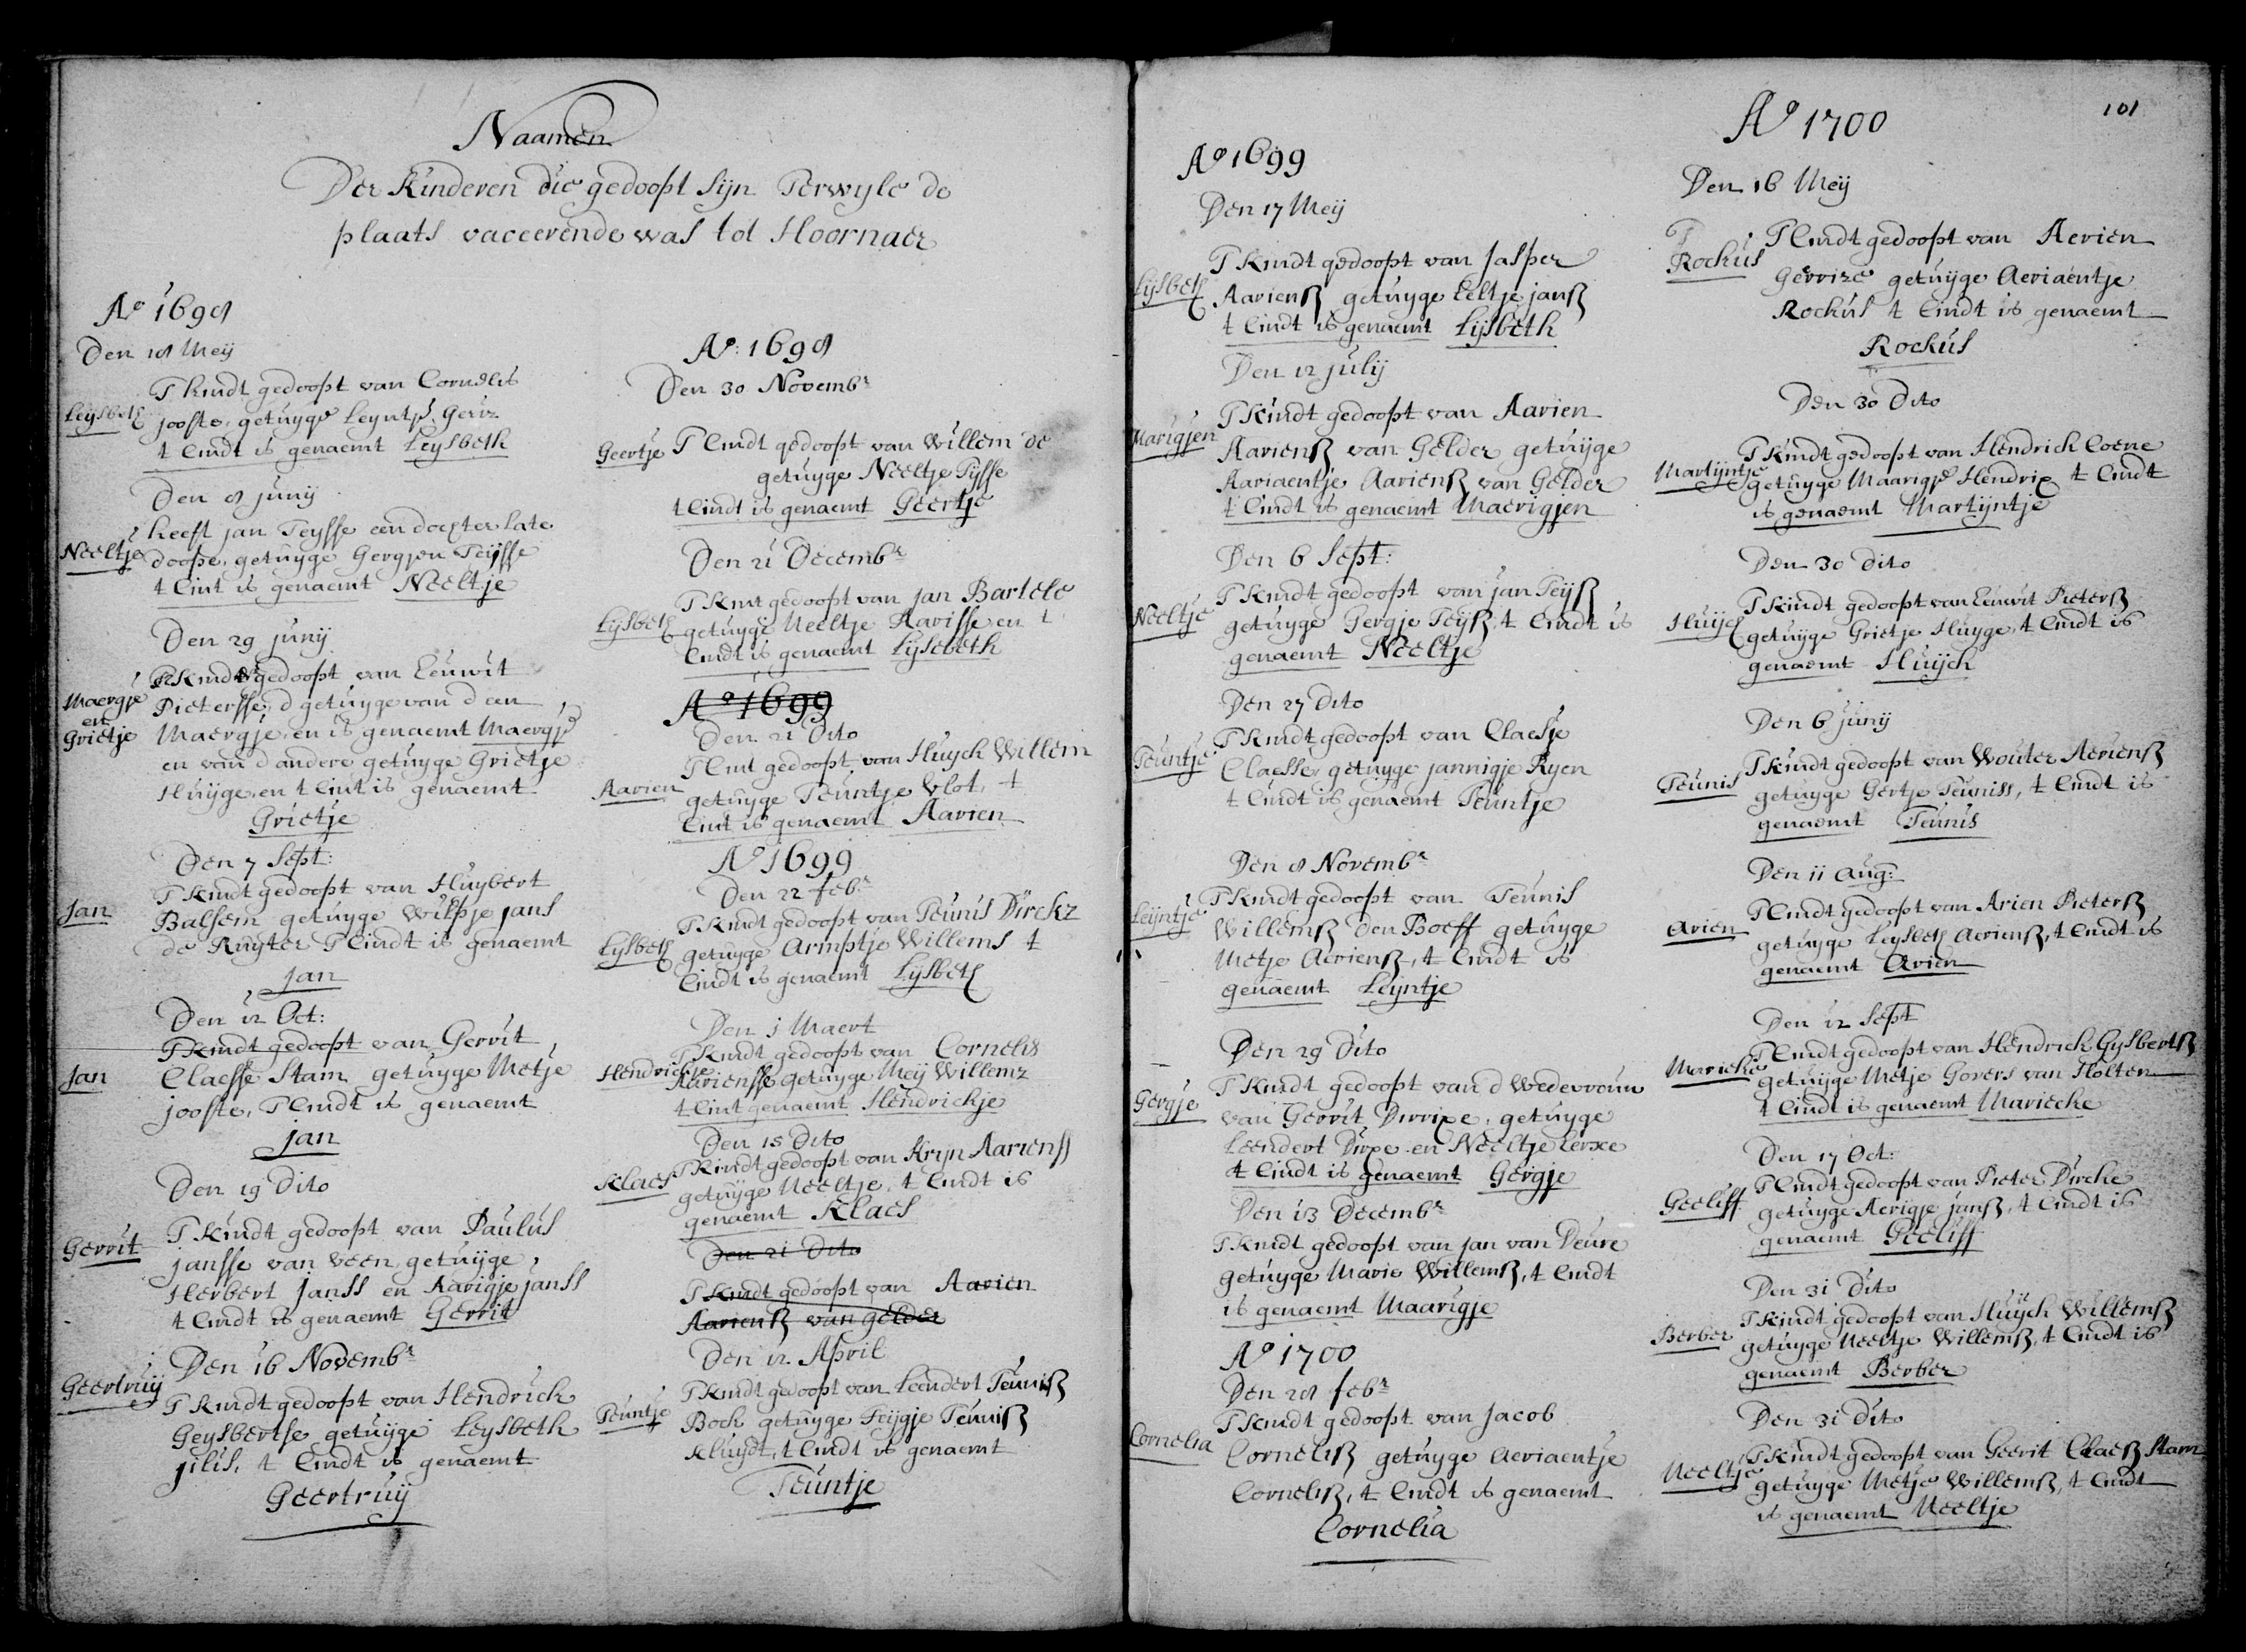 Naamen
Der Kinderen die gedoopt sijn Terwyle de
plaats vaceerende was tot Hoornaer
Ao 1698
Den 18 Meij
T kindt gedoopt van Cornelis
Leijsbeth jooste, getuijge Leyntje Gerrz
t Cindt is genaemt Leysbeth
Den 8 junij
heeft jan Teysse een dochter late
Neeltje doope, getuyge Gergjen Teijsse
t Cint is genaemt Neeltje
Den 29 junij
T Kindt gedoopt van Eeuwit
Maergje Pietersse, d getuyge van d een
en
Grietje Maergje, en is genaemt Maergje
en van d andere getuyge Grietje
Huijge, en t Cint is genaemt
Grietje
Den 7 Sept:
T Kindt gedoopt van Huybert
Jan Balsem getuyge Wilpje jans
de Ruyter T Cindt is genaemt
jan
Den 12 Oct:
T Kindt gedoopt van Gerrit
Jan Claesse Stam getuyge Metje
jooste, T Cindt is genaemt
jan
Den 19 Dito
T Kindt gedoopt van Paulus
Gerrit jansse van veen, getuijge
Herbert Janss en Aarigje janss
t Cindt is genaemt Gerrit
Den 16 Novembr
Geertruij T Kindt gedoopt van Hendrick
Geysbertse getuijge Leysbeth
jilis, t Cindt is genaemt
Geertruij
Ao: 1698
Den 30 Novembr
Geertje T Cindt gedoopt van Willem de
getuyge Neeltje Tysse
t Cindt is genaemt Geertje
Den 21 Decembr
T Kint gedoopt van jan Bartele
Lijsbeth getuyge Neeltje Aarisse en t
Cindt is genaemt Lijsebeth
Ao 1699
Den 21 Dito
T Cint gedoopt van Huych Willem
Aarien getuyge Teuntje Vlot, t
Cint is genaemt Aarien
Ao 1699
Den 22 febr
T Kindt gedoopt van Teunis Dirckz
Lijsbeth getuyge Armptje Willems t
Cindt is genaemt Lijsbeth
Den 1 Maert
T Kindt gedoopt van Cornelis
Hendrickje Aariensse getuyge Meij Willemz
t Cint genaemt Hendrickje
Den 15 Dito
T Kindt gedoopt van Krijn Aarienss
Klaes getuijge Neeltje, t Cindt is
genaemt Klaes
Den 21 Dito
T Kindt gedoopt van Aarien
Aariensz van Gelder
Den 12 April
T Kindt gedoopt van Leendert Teunisz
Teuntje Bock getuyge Feijgje Teunisz
Kluijdt, t Cindt is genaemt
Teuntje
Ao 1699
Den 17 Meij
T Kindt gedoopt van Jasper
Lijsbeth Aariensz getuyge Eeltje jansz
t Cindt is genaemt Lijsbeth
Den 12 julij
T Kindt gedoopt van Aarien
Marigjen Aariensz van Gelder getuijge
Aariaentje Aariensz van Gelder
t Cindt is genaemt Maerigjen
Den 6 Sept:
T Kindt gedoopt van jan Teijsz
Neeltje getuyge Gergje Teijsz, t Cindt is
genaemt Neeltje
Den 27 Dito
T Kindt gedoopt van Claesje
Teuntje Claesse, getuyge jannigje Ryen
t Cindt is genaemt Teuntje
Den 8 Novembr
T Kindt gedoopt van Teunis
Leijntje Willemsz den Boeff getuyge
Metje Aeriensz, t Cindt is
genaemt Leijntje
Den 29 Dito
T Kindt gedoopt van d Wedevrouw
Gergje van Gerrit Dirrixe, getuyge
Leendert Dirxe en Neeltje Cerxe
t Cindt is genaemt Gergje
Den 13 Decembr
T Kindt gedoopt van jan van Deure
getuyge Marie Willemsz, t Cindt
is genaemt Maarigje
Ao 1700
Den 28 febr
T Kindt gedoopt van Jacob
Cornelia Cornelisz getuyge Aeriaentje
Cornelisz, t Cindt is genaemt
Cornelia
101
Ao 1700
Den 16 Meij
T Cindt gedoopt van Aerien
Rockus Gerrize getuijge Aeriaentje
Rockus t Cindt is genaemt
Rockus
Den 30 Dito
T Kindt gedoopt van Hendrick Coene
Martijntje getuyge Maarigje Hendrix t Cindt
is genaemt Martijntje
Den 30 Dito
T Kindt gedoopt van Eeuwit Pietersz
Huijch getuijge Grietje Huyge, t Cindt is
genaemt Huijch
Den 6 junij
T Kindt gedoopt van Wouter Aeriensz
Teunis getuyge Gertje Teuniss, t Cindt is
genaemt Teunis
Den 11 Aug:
T Cindt gedoopt van Arien Pietersz
Arien getuyge Leysbeth Aeriensz, t Cindt is
genaemt Arien
Den 12 Sept
T Cindt gedoopt van Hendrick Gysbertsz
Mariecke getuijge Metje Govers van Holten
t Cindt is genaemt Mariecke
Den 17 Oct:
T Cindt gedoopt van Pieter Dircke
Geeliff getuyge Aerigje jansz, t Cindt is
genaemt Geeliff
Den 31 Dito
T Kindt gedoopt van Huijch Willemsz
Berber getuyge Neeltje Willemsz, t Cindt is
genaemt Berber
Den 31 Dito
T Kindt gedoopt van Geerit Claesz Stam
Neeltje getuyge Metje Willemsz, t Cindt
is genaemt Neeltje